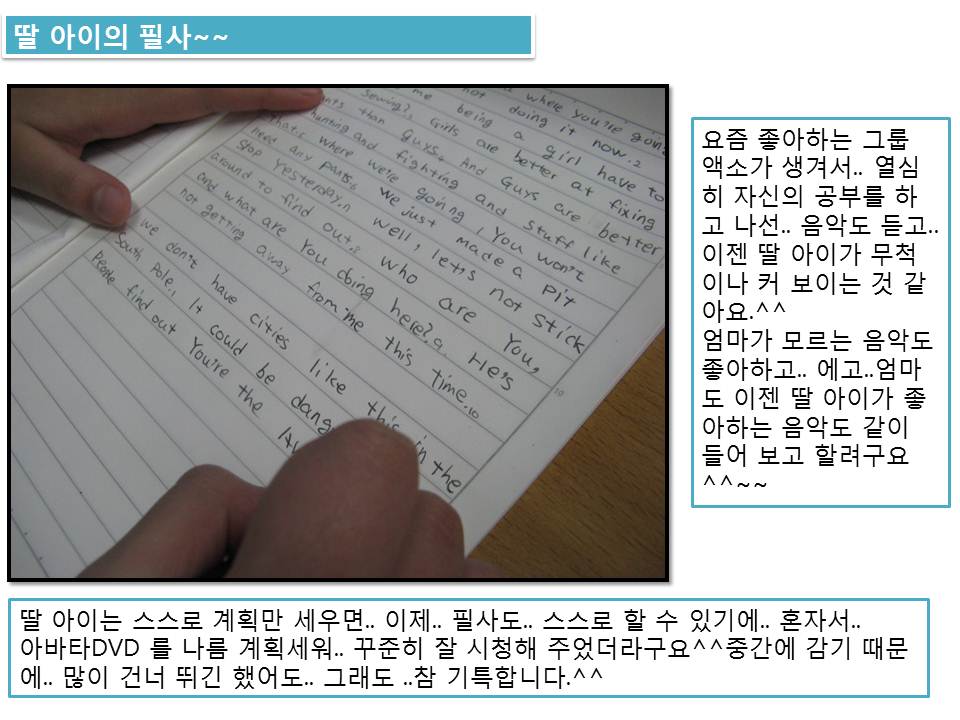 딸 아이의 필사~~
where you're going
not doing it now.
me being a girl have to
sewing? Girls are better at fixing
pants than guys. And Guys are better
hunting and fighting and stuff like
that's where we're going, You won't
need any pants. We just made a Pit
Stop Yesterday. Well, let's not stick
around to find out. Who are You,
and what are You doing here? He's
not getting away from me this time.
We don't have cities like this in the
South Pole. It could be dang
People find out You're the
요즘 좋아하는 그룹
액소가 생겨서.. 열심
히 자신의 공부를 하
고 나선.. 음악도 듣고..
이젠 딸 아이가 무척
이나 커 보이는 것 같
아요.^^
엄마가 모르는 음악도
좋아하고.. 에고..엄마
도 이젠 딸 아이가 좋
아하는 음악도 같이
들어 보고 할려구요
^^~~
딸 아이는 스스로 계획만 세우면.. 이제.. 필사도.. 스스로 할 수 있기에.. 혼자서..
아바타DVD 를 나름 계획세워.. 꾸준히 잘 시청해 주었더라구요^^중간에 감기 때문
에.. 많이 건너 뛰긴 했어도.. 그래도 ..참 기특합니다.^^